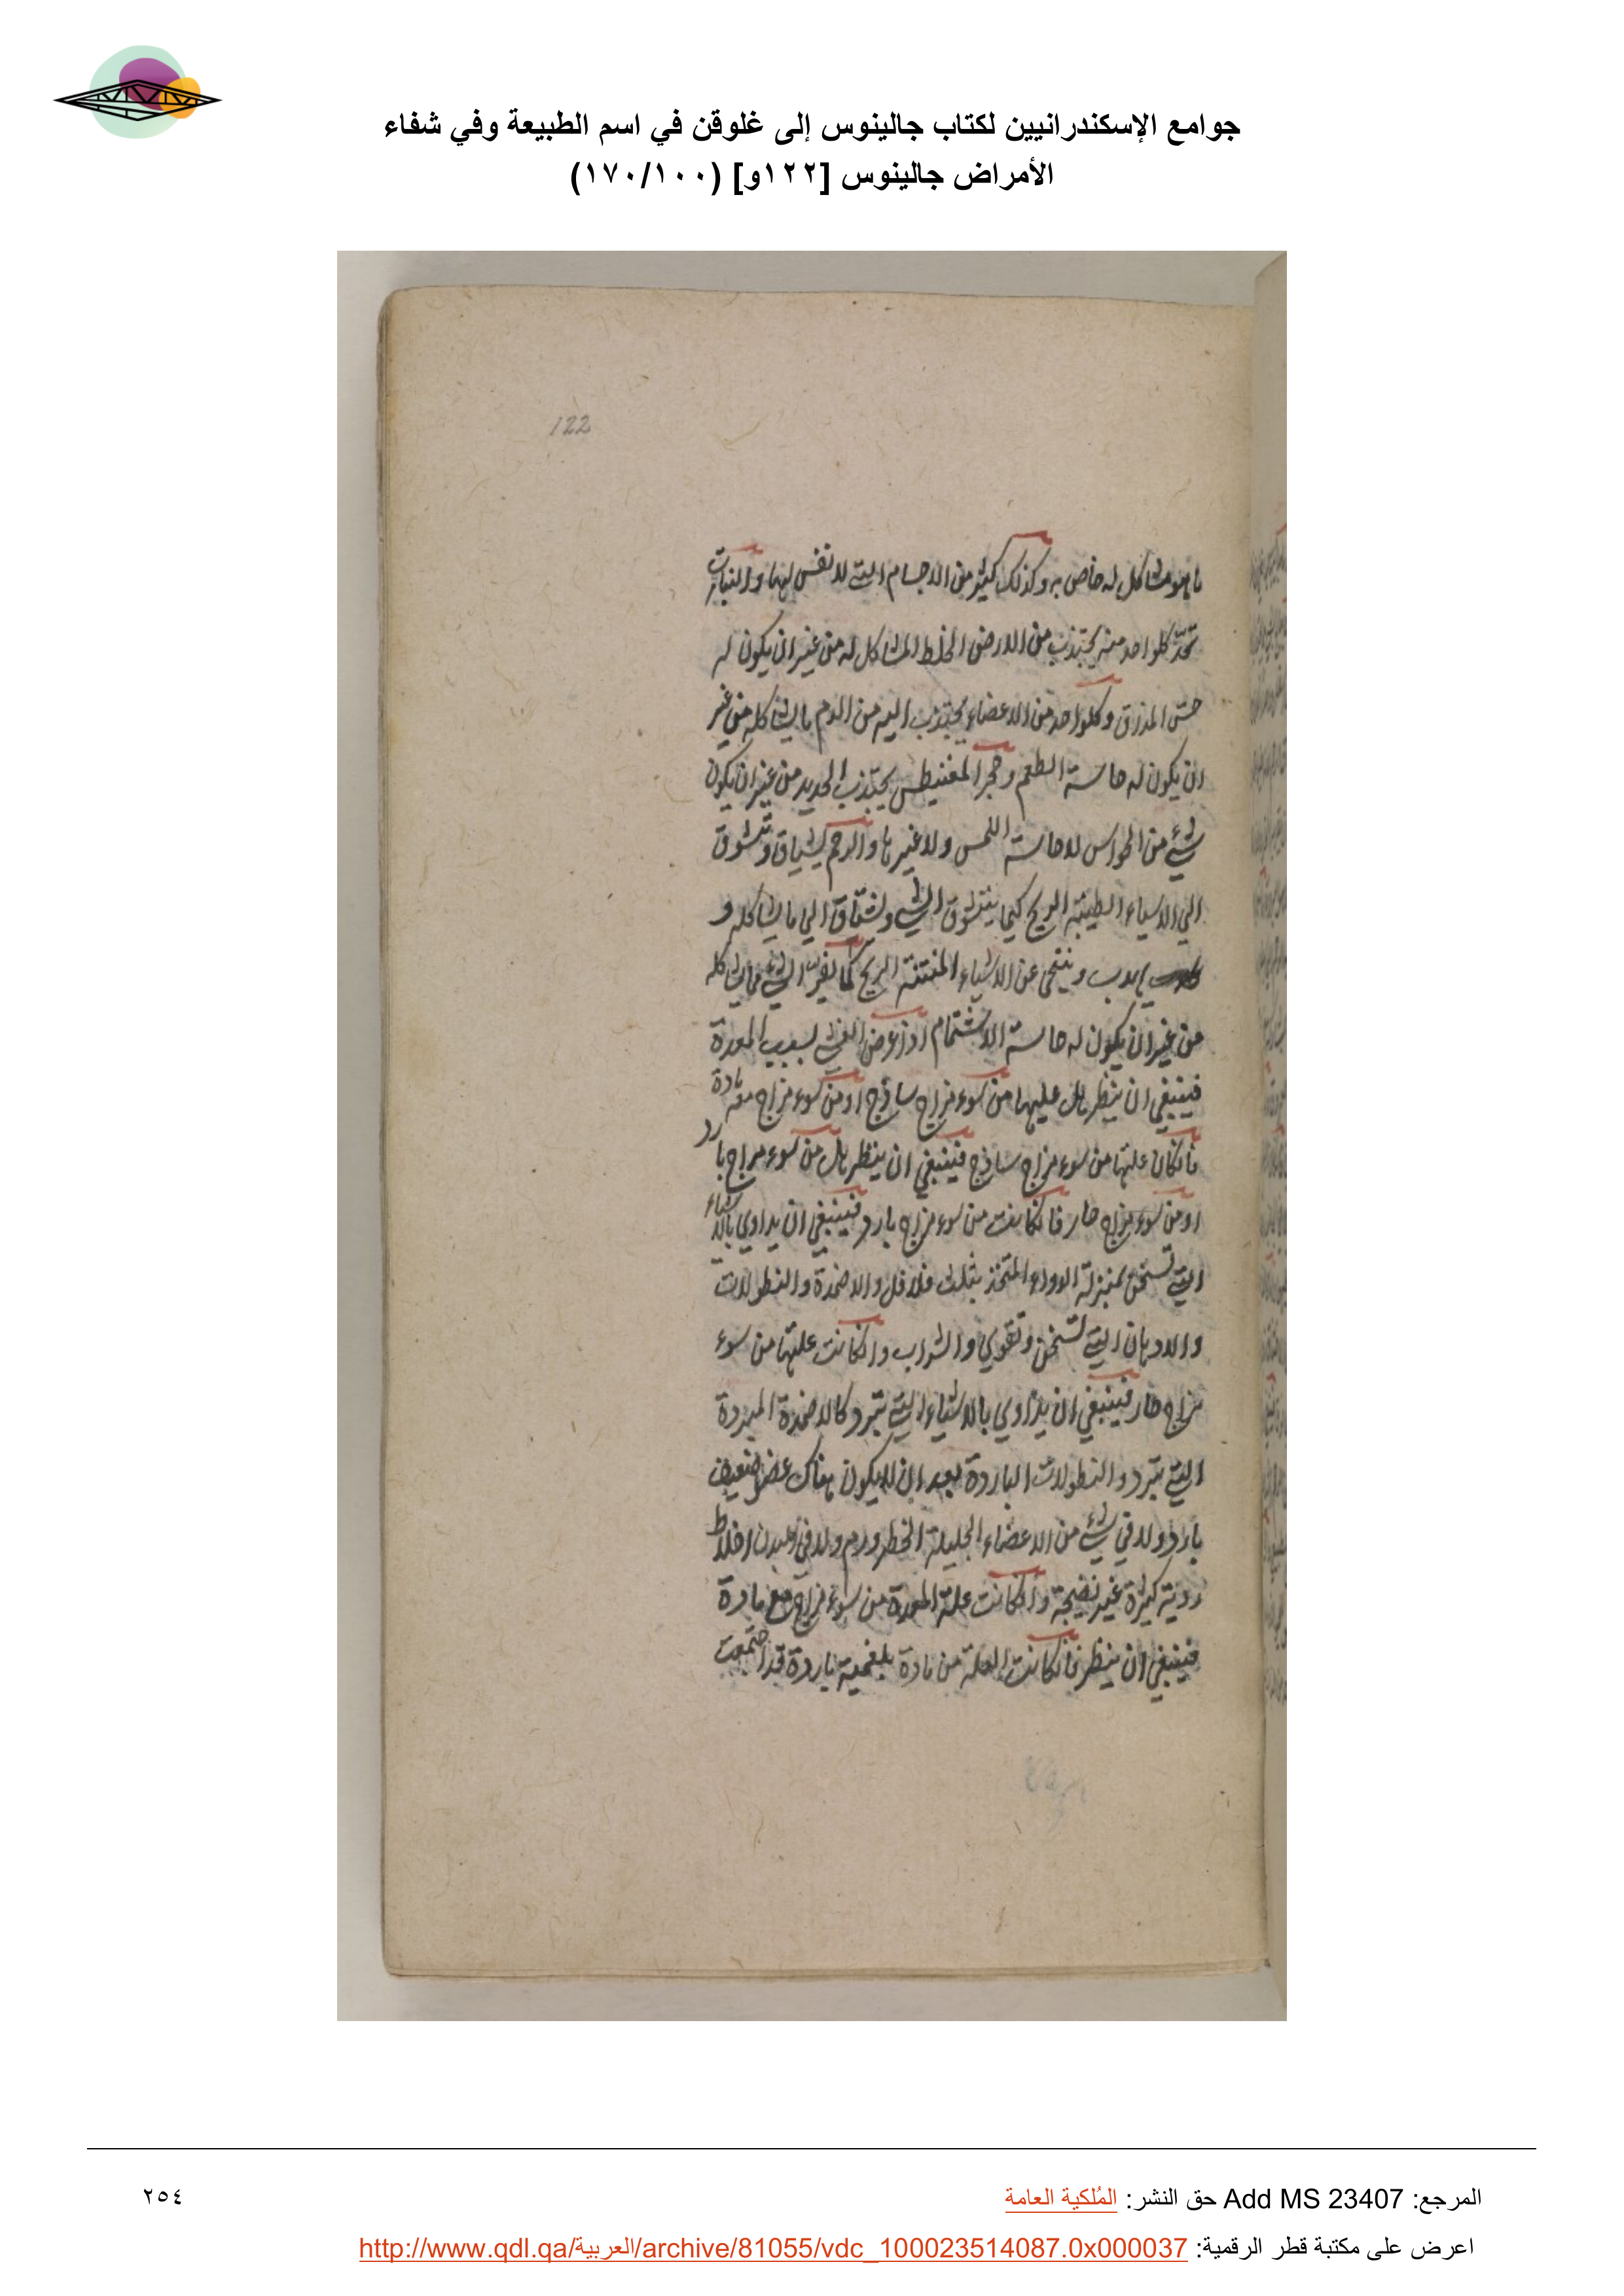 جوامع الإسكندرانيين لكتاب جالينوس إلى غلوقن في اسم الطبيعة وفي شفاء
الأمراض جالينوس [١٢٢و] (١٧٠/١٠٠)
122
ما هو مشاكل له خاص به وكذلك كثير من الاجسام التي لا نفس لها والنبات
كلواحد منه يجتذب من الارض الخلط المشاكل له من غير ان يكون له
حس المذاق وكلواحد من الاعضاء يجتذب اليه من الدم ما يشاكله من غير
ان يكون له حاسة الطعم وحجر المغنيطس يجتذب الحديد من غير ان يكون
شيء من الحواس لا حاسة اللمس ولا غيرها والرحم يشتاق وتتشوق
الي الاشياء الطيبة الريح كما يتشوق الشي ويشتاق الي ما يشاكله و
يهرب ويتنحى عن الاشياء المنتنة الريح كما الشيء
من غير ان يكون له حاسة الاشتمام اذا عرض الغشي بسبب المعدة
فينبغي ان ينظر هل عليها من سوء مزاج ساذج او من سوء مزاج معه مادة
فانكان علتها من سوء مزاج ساذج فينبغي ان ينظر هل من سوء مزاج بارد
او من سوء مزاج حار فانكانت من سوء مزاج بارد فينبغي ان يداوي بالاشياء
التي تسخن بمنزلة الدواء المتخذ بثلث فلافل والاضمدة والنطولات
والادهان التي تسخن وتقوي والشراب وانكانت علتها من سوء
مزاج حار فينبغي ان يداوي بالاشياء التي تبرد كالاضمدة المبردة
التي تبرد والنطولات الباردة بعد ان لا يكون هناك عضو ضعيف
بارد ولا في شيء من الاعضاء الجليلة الخطر ورم ولا في البدن اخلاط
ردية كثيرة غير نضيجة وانكانت علة المعدة من سوء مزاج مع مادة
فينبغي ان ينظر فانكانت العلة من مادة بلغمية باردة قد اجتمعت
المرجع: Add MS 23407 حق النشر: المُلكية العامة
٢٥٤
اعرض على مكتبة قطر الرقمية: http://www.qdl.qa/العربية/archive/81055/vdc_100023514087.0x000037